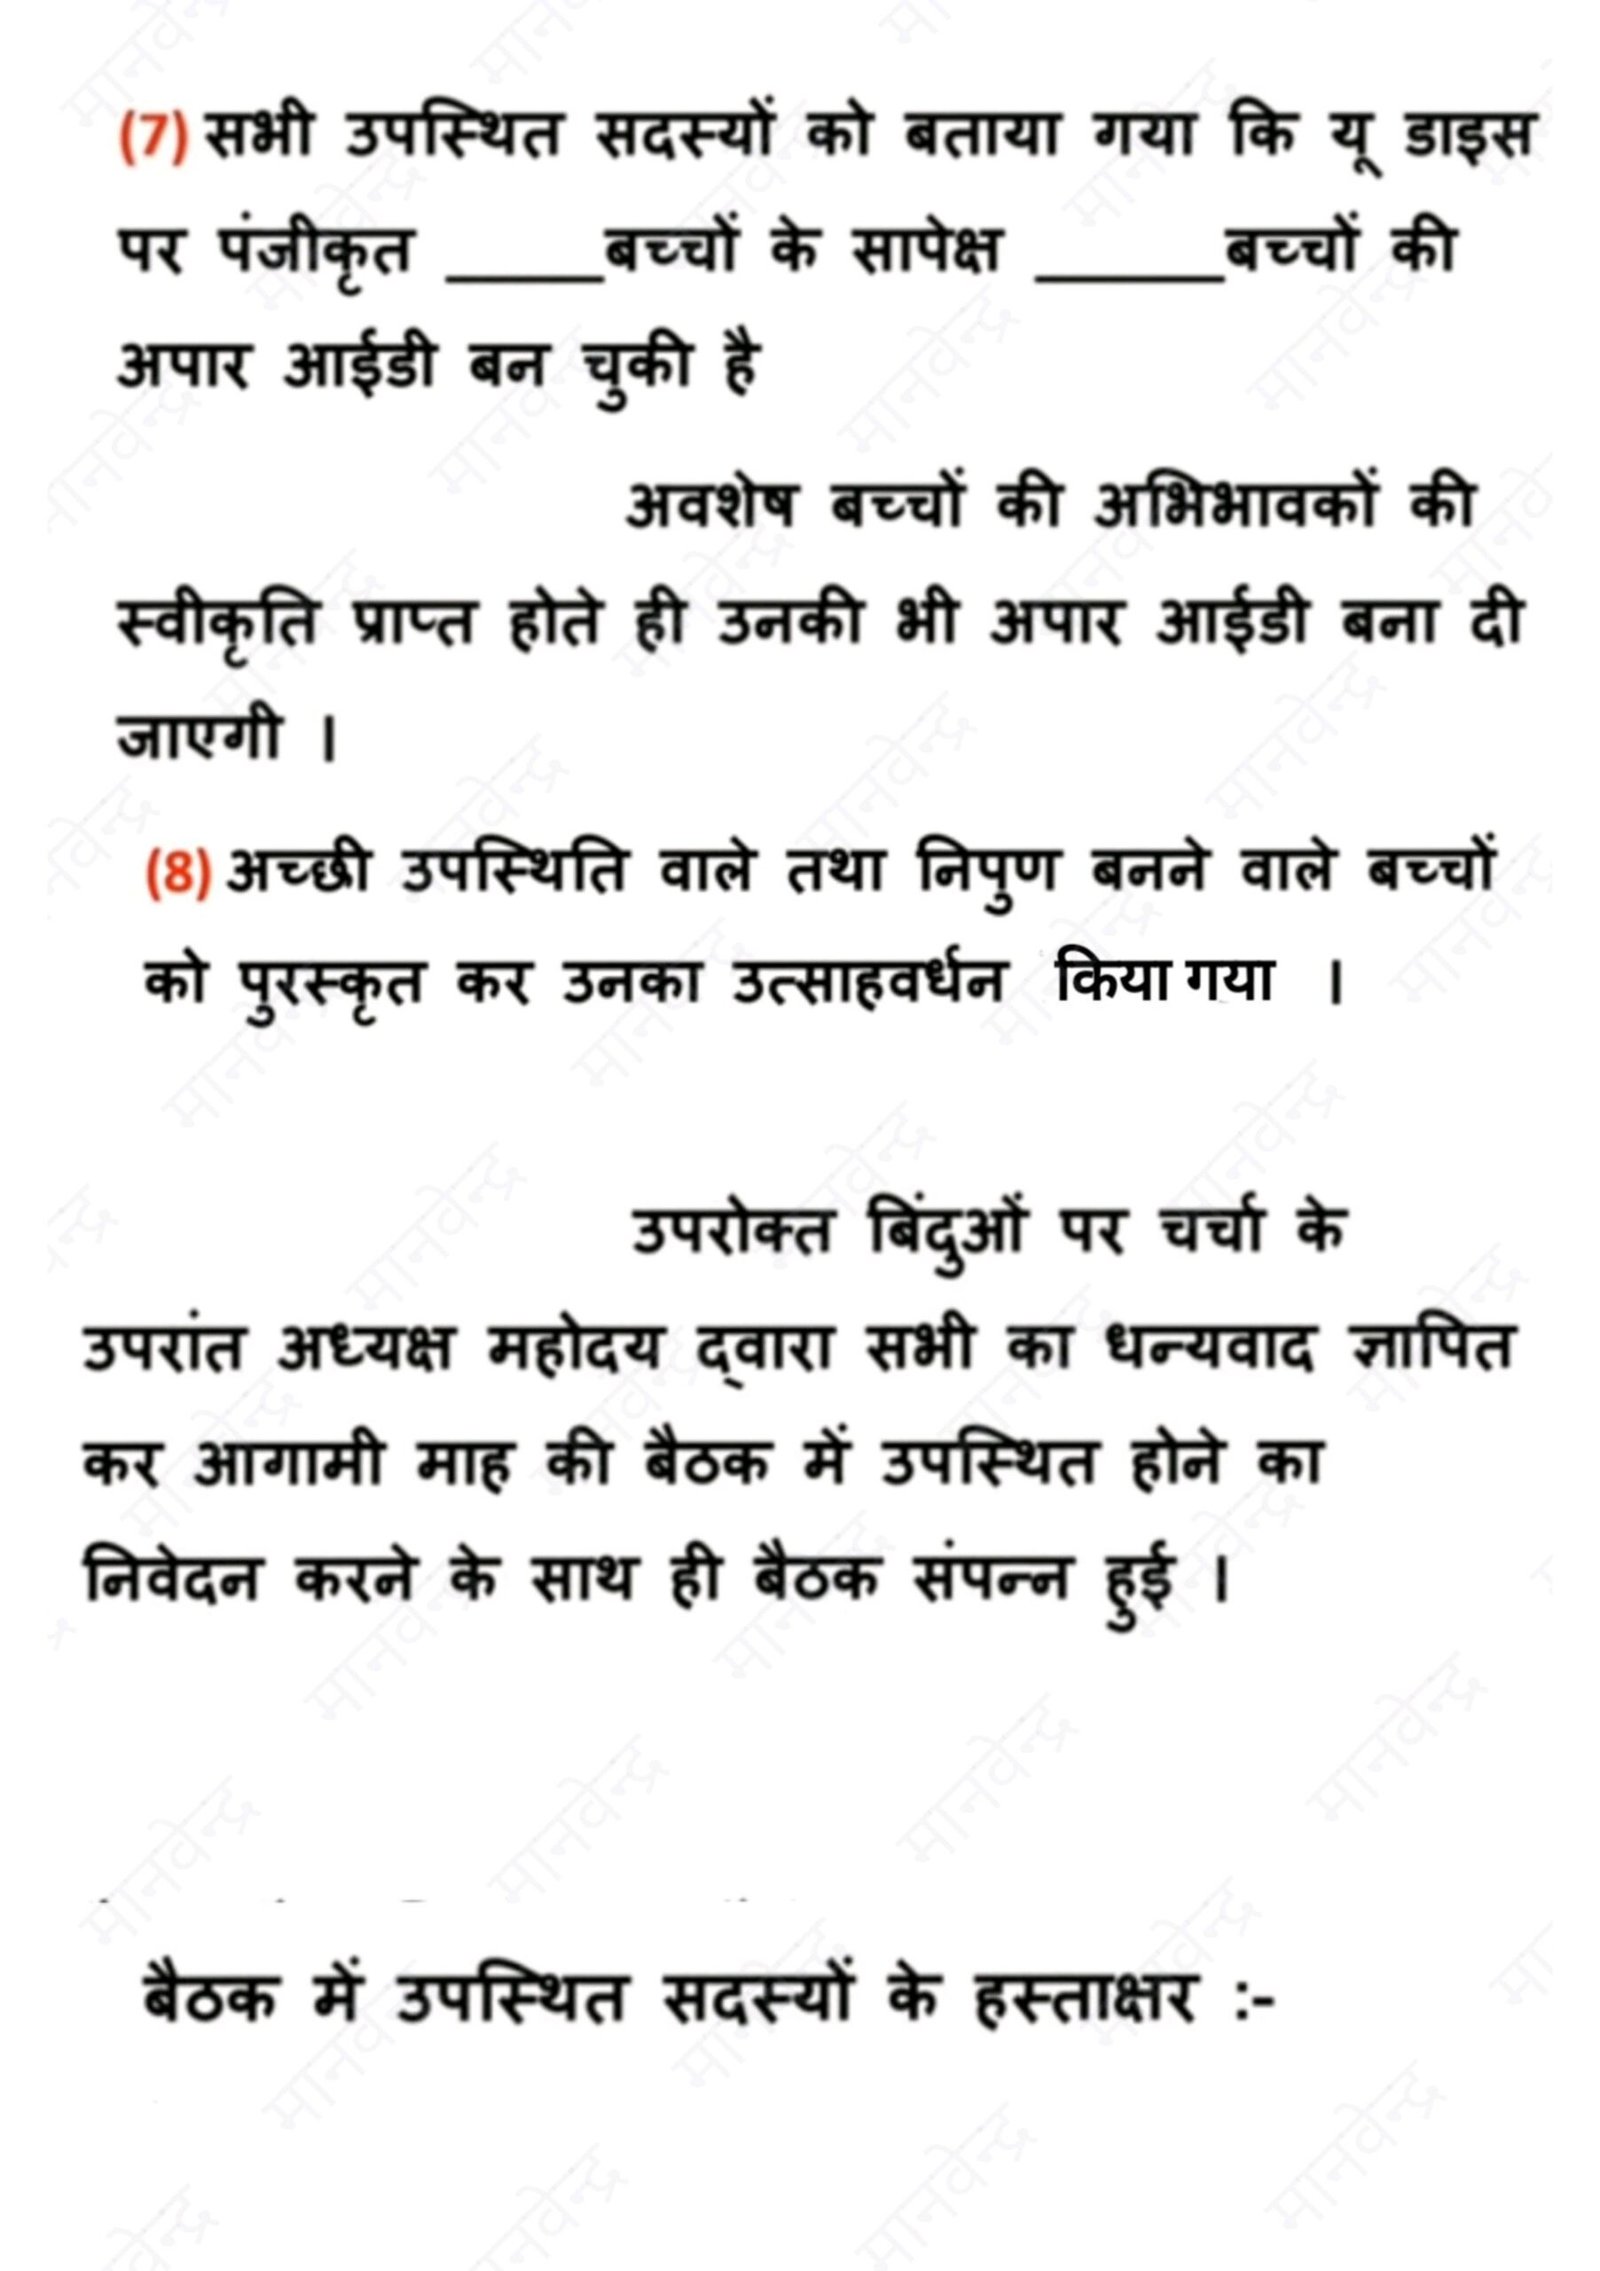 (7) सभी उपस्थित सदस्यों को बताया गया कि यू डाइस
पर पंजीकृत _____बच्चों के सापेक्ष ______बच्चों की
अपार आईडी बन चुकी है
अवशेष बच्चों की अभिभावकों की
स्वीकृति प्राप्त होते ही उनकी भी अपार आईडी बना दी
जाएगी ।
(8) अच्छी उपस्थिति वाले तथा निपुण बनने वाले बच्चों
को पुरस्कृत कर उनका उत्साहवर्धन किया गया ।
उपरोक्त बिंदुओं पर चर्चा के
उपरांत अध्यक्ष महोदय द्वारा सभी का धन्यवाद ज्ञापित
कर आगामी माह की बैठक में उपस्थित होने का
निवेदन करने के साथ ही बैठक संपन्न हुई ।
बैठक में उपस्थित सदस्यों के हस्ताक्षर :-
मानवेन्द्र